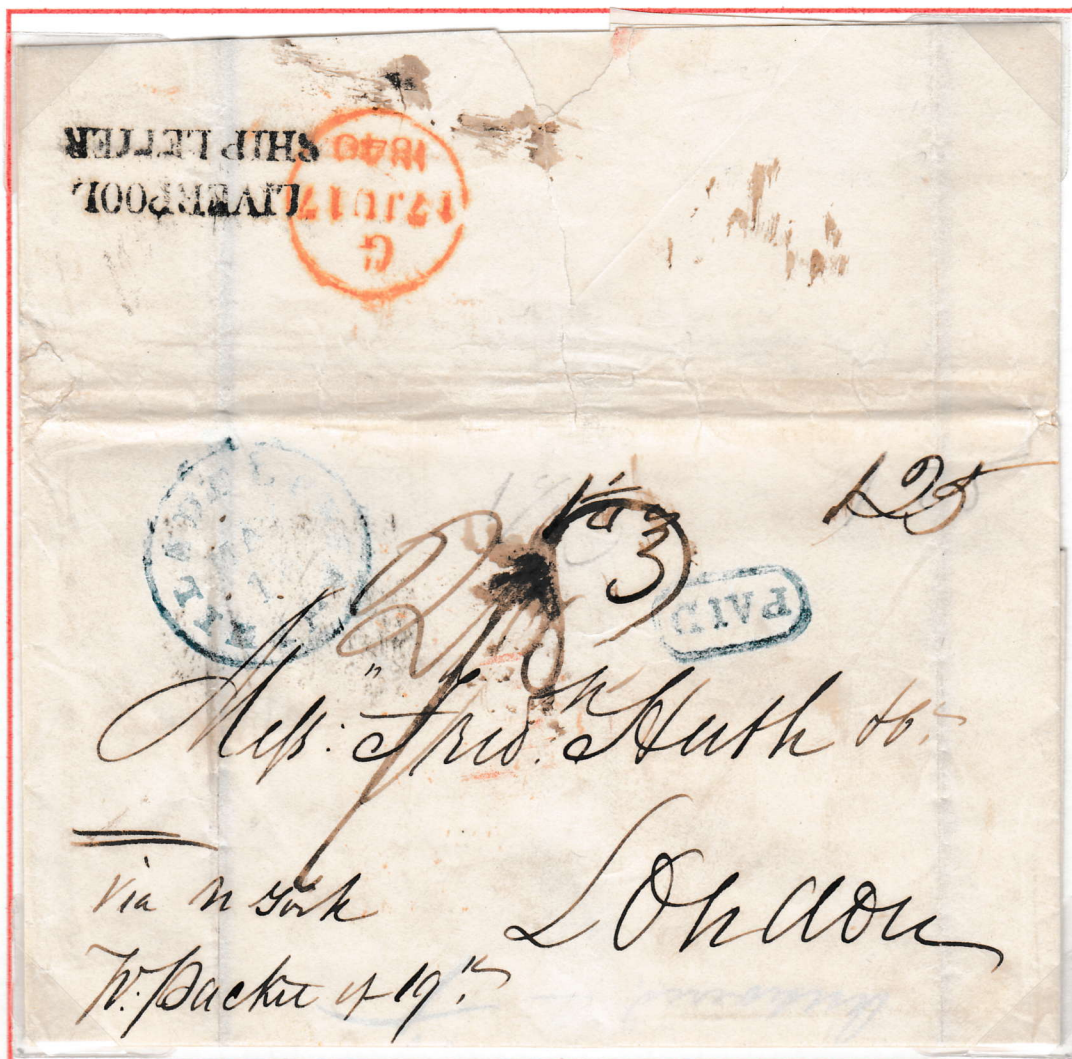 LIVERPOOL
SHIP LETTER
G
17 JU 17
1840
125
3
PAID
Mess: Fred: Huth &Co:
London
via N York
Packet of 19th